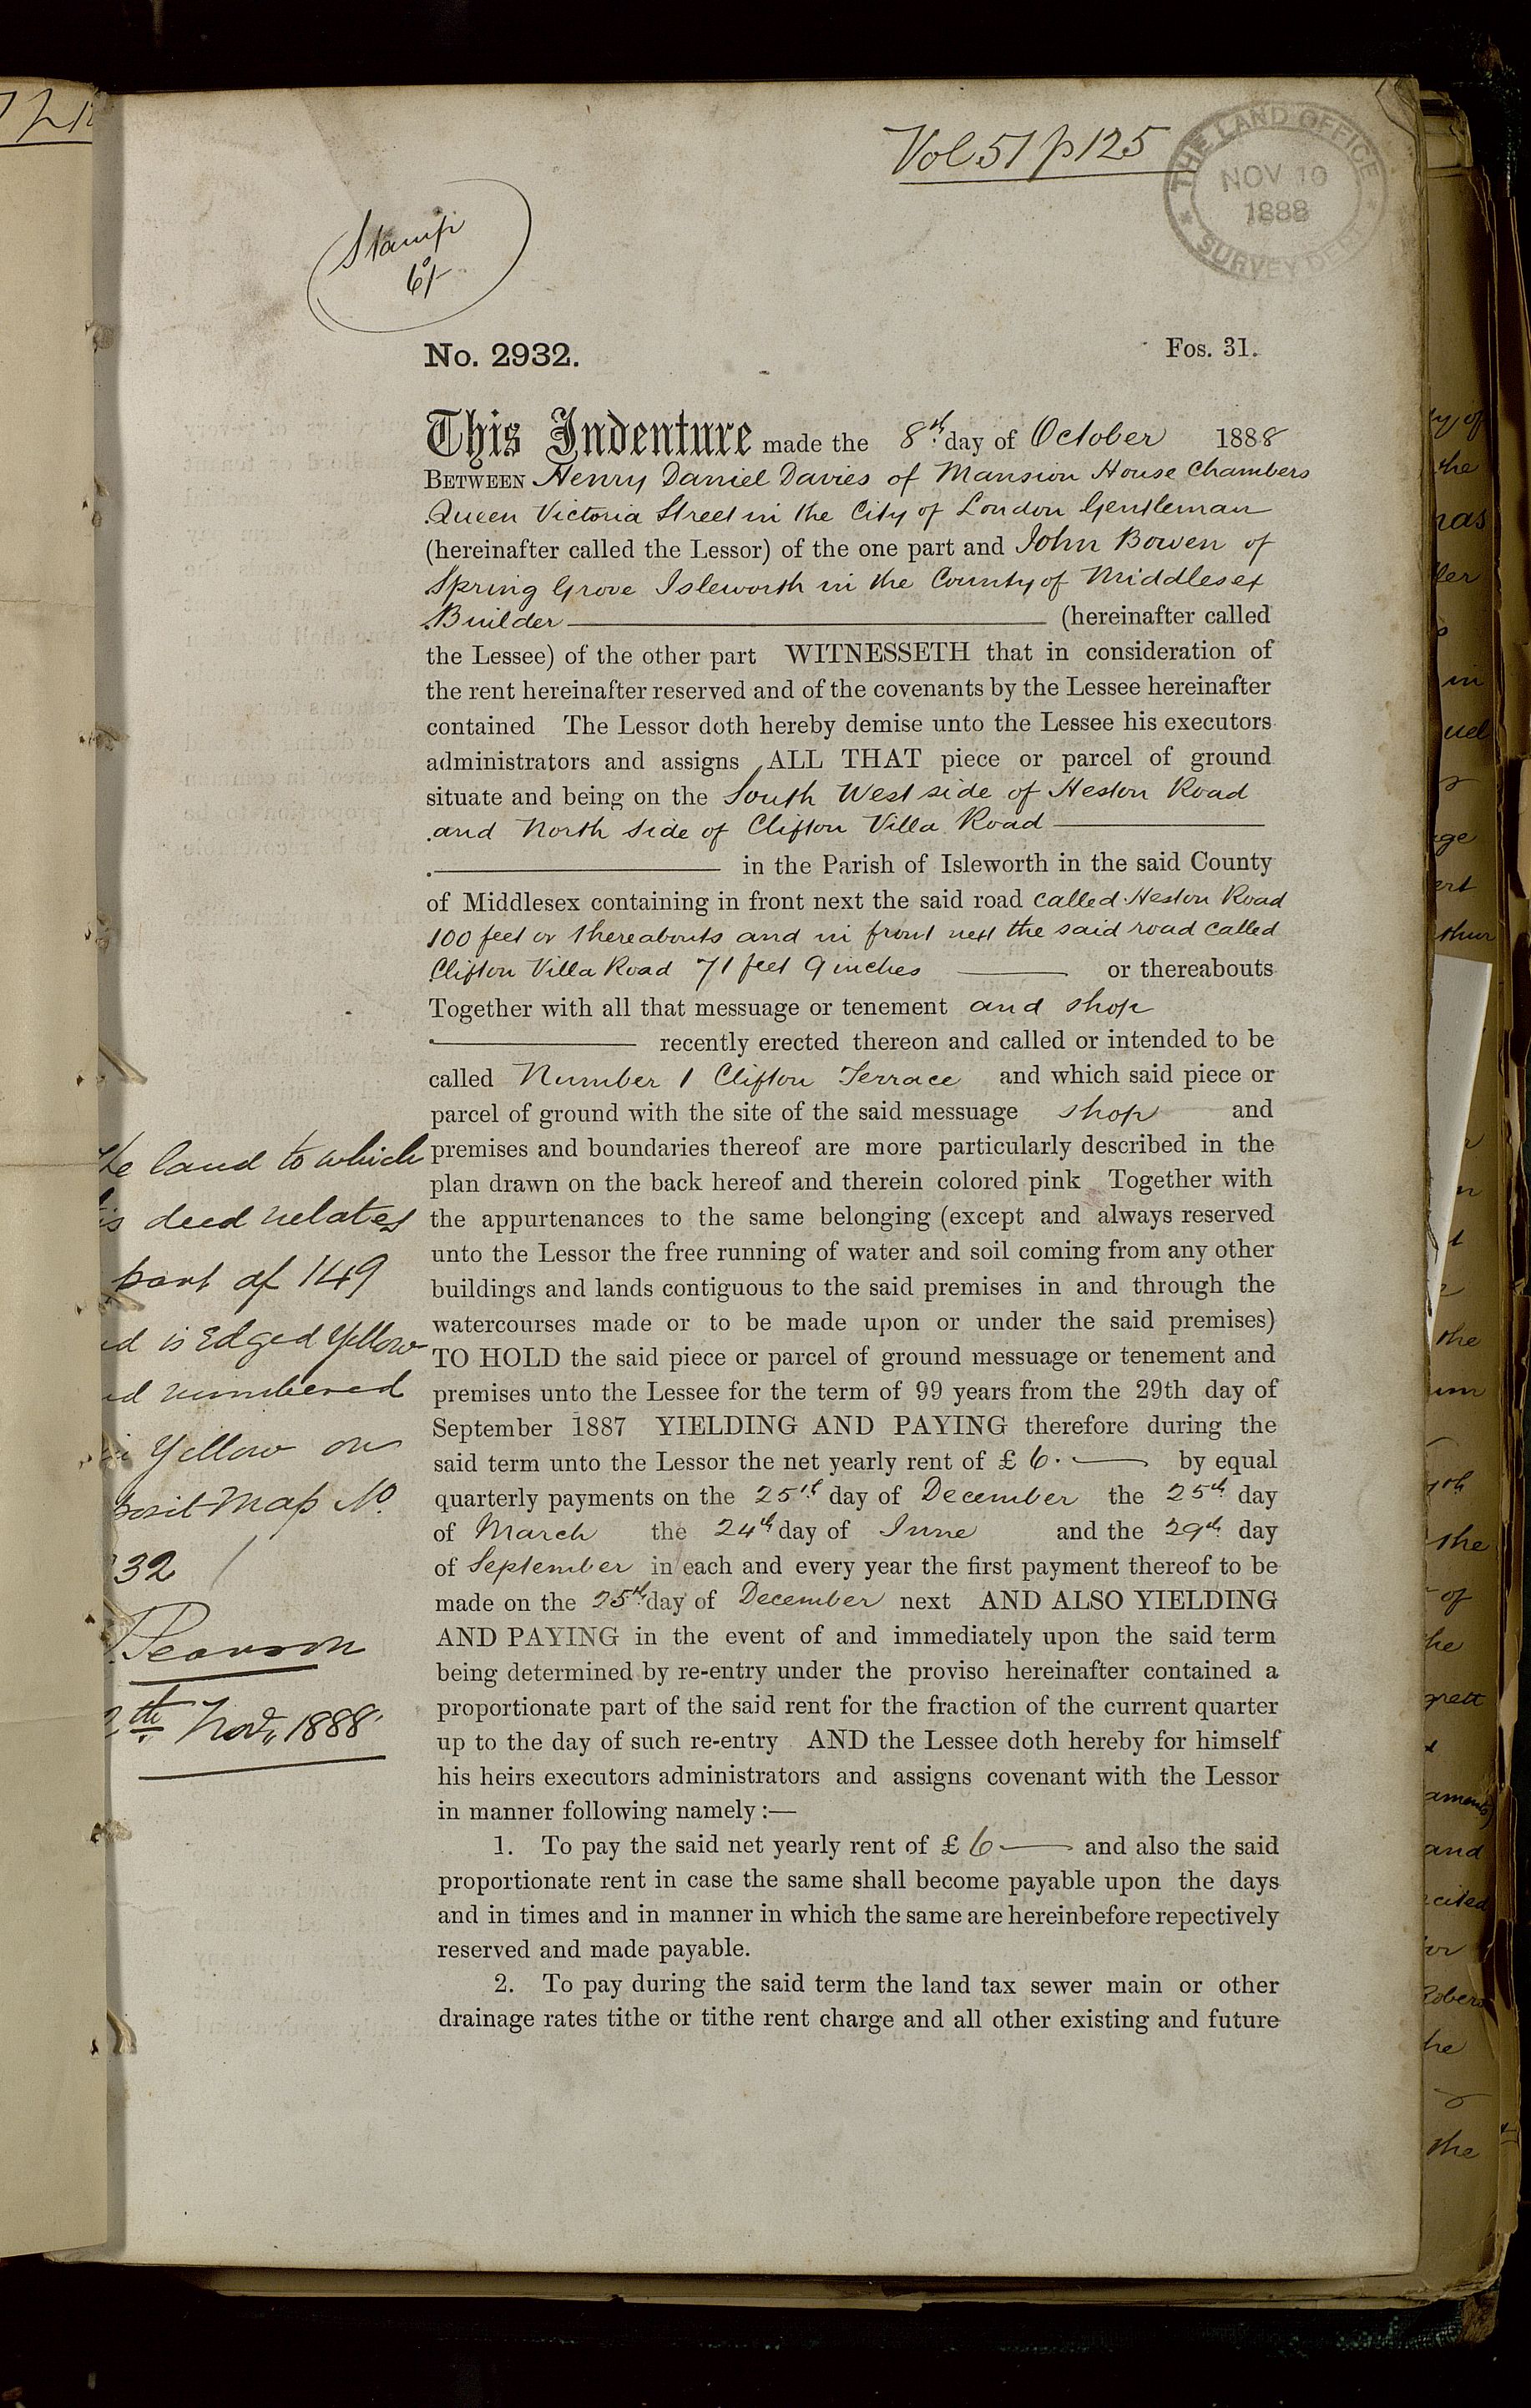 Vol 51 p 125
THE LAND OFFICE
NOV 10
1888
SURVEY DEPT
Stamp
6/-
No. 2932.
Fos. 31.
This Indenture made the 8th day of October 1888
BETWEEN Henry Daniel Davies of Mansion House Chambers
Queen Victoria Street in the City of London Gentleman
(hereinafter called the Lessor) of the one part and John Bowen of
Spring Grove Isleworth in the County of Middlesex
Builder (hereinafter called
the Lessee) of the other part WITNESSETH that in consideration of
the rent hereinafter reserved and of the covenants by the Lessee hereinafter
contained The Lessor doth hereby demise unto the Lessee his executors
administrators and assigns ALL THAT piece or parcel of ground
situate and being on the South West side of Heston Road
and North Side of Clifton Villa Road
in the Parish of Isleworth in the said County
of Middlesex containing in front next the said road called Heston Road
100 feet or thereabouts and in front next the said road called
Clifton Villa Road 71 feet 9 inches or thereabouts
Together with all that messuage or tenement and shop
recently erected thereon and called or intended to be
called Number 1 Clifton Terrace and which said piece or
parcel of ground with the site of the said messuage shop and
premises and boundaries thereof are more particularly described in the
plan drawn on the back hereof and therein colored pink Together with
the appurtenances to the same belonging (except and always reserved
unto the Lessor the free running of water and soil coming from any other
buildings and lands contiguous to the said premises in and through the
watercourses made or to be made upon or under the said premises)
TO HOLD the said piece or parcel of ground messuage or tenement and
premises unto the Lessee for the term of 99 years from the 29th day of
September 1887 YIELDING AND PAYING therefore during the
said term unto the Lessor the net yearly rent of £ 6. by equal
quarterly payments on the 25th day of December the 25th day
of March the 24th day of June and the 29th day
of September in each and every year the first payment thereof to be
made on the 25th day of December next AND ALSO YIELDING
AND PAYING in the event of and immediately upon the said term
being determined by re-entry under the proviso hereinafter contained a
proportionate part of the said rent for the fraction of the current quarter
up to the day of such re-entry AND the Lessee doth hereby for himself
his heirs executors administrators and assigns covenant with the Lessor
in manner following namely :—
1. To pay the said net yearly rent of £ 6 and also the said
proportionate rent in case the same shall become payable upon the days
and in times and in manner in which the same are hereinbefore repectively
reserved and made payable.
2. To pay during the said term the land tax sewer main or other
drainage rates tithe or tithe rent charge and all other existing and future
land to which
deed relates
part of 149
is Edged Yellow
numbered
Yellow on
Map No.
32
Pearson
th Nov. 1888